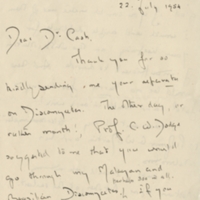 22. July 1954
Dear Dr. Cook,
Thank you for so
kindly sending me your separate
on Dianonyutes. The other day, or
rather month!, Prof. C.W. 
suggested to me that you would
go through my Malayan and
Brazilian Dianonyutes, if you